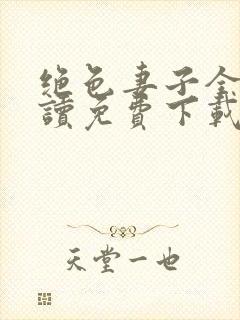 絶色妻子全
讀免費下載
天堂一也